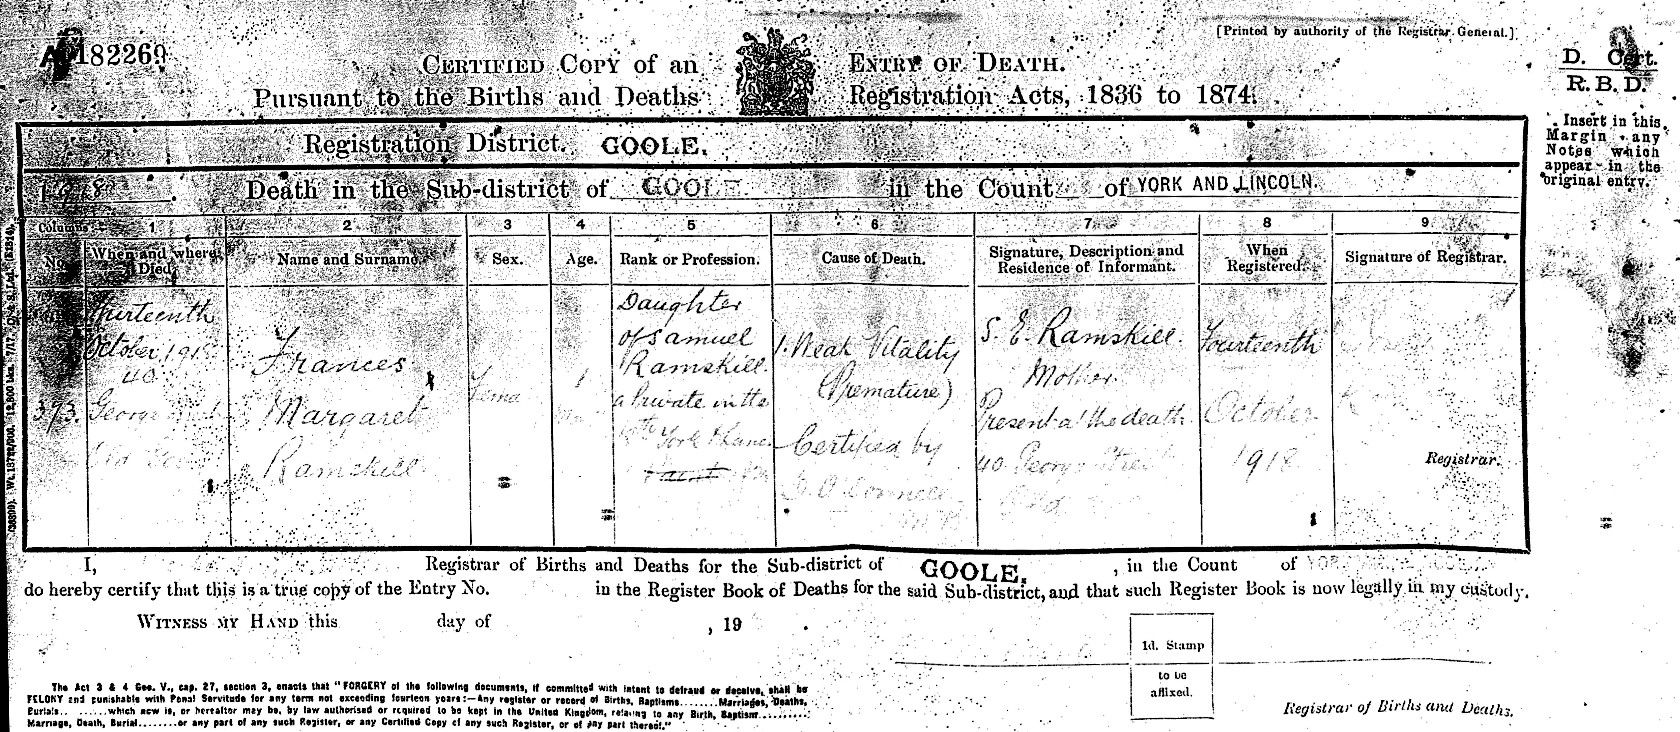 [Printed by authority of the Registrar General.]
182269
CERTIFIED COPY of an ENTRY OF DEATH.
Pursuant to the Births and Deaths Registration Acts, 1836 to 1874.
D. Cert.
R. B. D.
Insert in this
Margin any
Notes which
appear in the
original entry.
Registration District. GOOLE.
1918. Death in the Sub-district of GOOLE in the Count of YORK AND LINCOLN.
Columns 1 2 3 4 5 6 7 8 9
No. When and where Died. Name and Surname. Sex. Age. Rank or Profession. Cause of Death. Signature, Description and Residence of Informant. When Registered. Signature of Registrar.
373.
October 1918
40
George
Frances
Margaret
Ramskill
Daughter
of Samuel
Ramskill
a Private in the
York & Lancs
1. Weak Vitality
(Premature)
Certified by
O'Connell
S. E. Ramskill.
Mother
Present at the death
40 George Street
Fourteenth
October
1918
Registrar.
I, Registrar of Births and Deaths for the Sub-district of GOOLE, , in the Count of YORK
do hereby certify that this is a true copy of the Entry No. in the Register Book of Deaths for the said Sub-district, and that such Register Book is now legally in my custody.
WITNESS MY HAND this day of , 19 .
1d. Stamp
to be
affixed.
Registrar of Births and Deaths.
The Act 3 & 4 Geo. V., cap. 27, section 3, enacts that "FORGERY of the following documents, if committed with intent to defraud or deceive, shall be
FELONY and punishable with Penal Servitude for any term not exceeding fourteen years:—Any register or record of Births, Baptisms........Marriages, Deaths,
Burials........which now is, or hereafter may be, by law authorised or required to be kept in the United Kingdom, relating to any Birth, Baptism..........
Marriage, Death, Burial........or any part of any such Register, or any Certified Copy of any such Register, or of any part thereof."